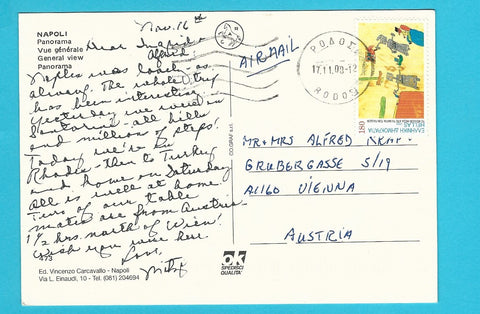 NAPOLI
Panorama
Vue générale
General view
Panorama
Nov. 16th
Dear Ingrid &
Alfred:
Naples was lovely - as
always. The whole trip
has been interesting.
Yesterday we were in
Santorini - all hills
and millions of steps!
Today we're in
Rhodes then to Turkey
and home on Saturday
All is well at home.
Two of our table
mates are from Austria
1½ hrs. north of Wien!
Wish you were here
Love,
Mitzi
Ed. Vincenzo Carcavallo - Napoli
Via L. Einaudi, 10 - Tel. (081) 204694
AIRMAIL
ΡΟΔΟΣ
17.11.00-12
RODOS
180
ΕΛΛΗΝΙΚΗ ΔΗΜΟΚΡΑΤΙΑ
HELLAS
MR + MRS ALFRED
GRUBERGASSE 5/19
A1160 VIENNA
AUSTRIA
ok
SPEDISCI
QUALITA'